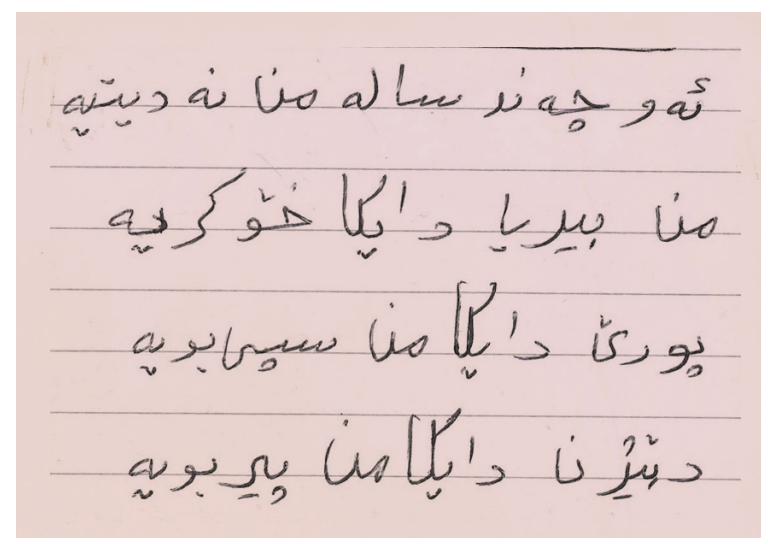 ئەو چەند سالە منا نە دیتیە
منا بیریا دایکا خۆ کریە
پورێ دایکا منا سپی بویە
دبێژنا دایکا من پیر بویە